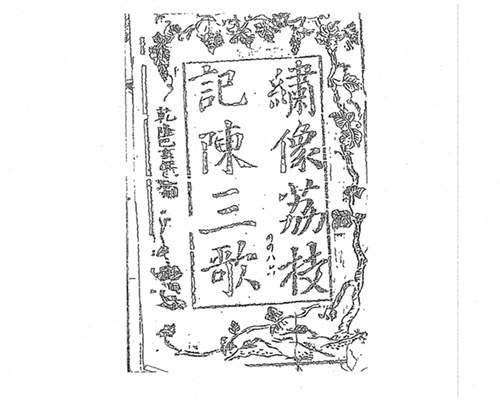 繡像荔枝
記陳三歌
乾隆己亥年